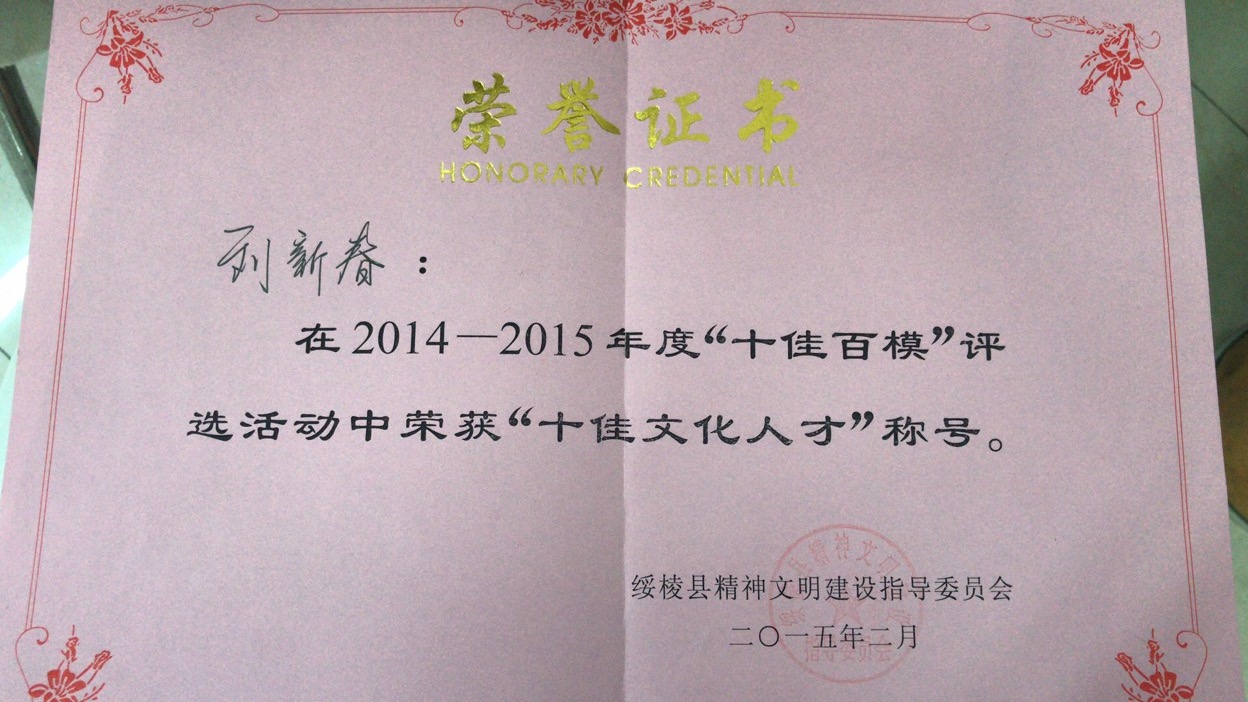 荣誉证书
HONORARY CREDENTIAL
刘新春：
在2014—2015年度“十佳百模”评
选活动中荣获“十佳文化人才”称号。
绥棱县精神文明建设指导委员会
二〇一五年二月